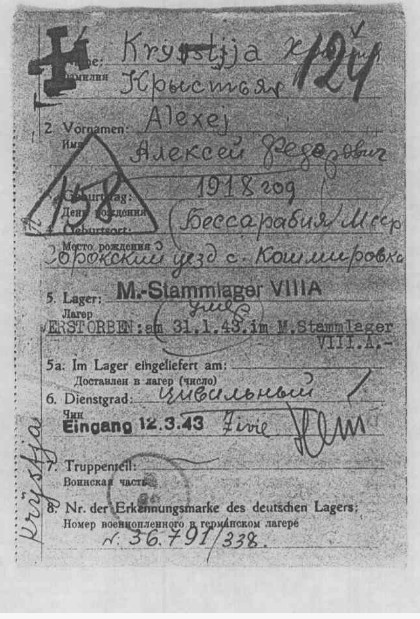 Name: Krystja
Фамилия Крыстья
124
2. Vornamen: Alexej
Имя Алексей Федорович
158
Geburtstag: 1918 год
День рождения
Geburtsort: Бессарабия/Мсср
Место рождения
Сорокский уезд с. Кошмировка
5. Lager: M.-Stammlager VIIIA
Лагерь умер
VERSTORBEN: am 31.1.43.im M.Stammlager
VIII.A.-
5a. Im Lager eingeliefert am:
Доставлен в лагерь (число)
6. Dienstgrad: цивильный
Чин
Eingang 12.3.43
7. Truppenteil:
Воинская часть
Krystja
8. Nr. der Erkennungsmarke des deutschen Lagers:
Номер военнопленного в германском лагере
N. 36.791/338.